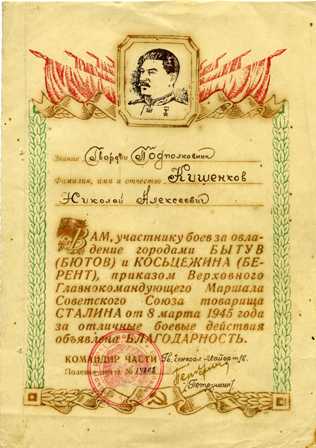 Звание Гвардии Подполковник
Фамилия, имя и отчество Кишенков
Николай Алексеевич
ВАМ, участнику боев за овла-
дение городами БЫТУВ
(БЮТОВ) и КОСЬЦЕЖИНА (БЕ-
РЕНТ), приказом Верховного
Главнокомандующего Маршала
Советского Союза товарища
СТАЛИНА от 8 марта 1945 года
за отличные боевые действия
объявлена БЛАГОДАРНОСТЬ.
КОМАНДИР ЧАСТИ Гв. Генерал-Майор
Полевая почта №